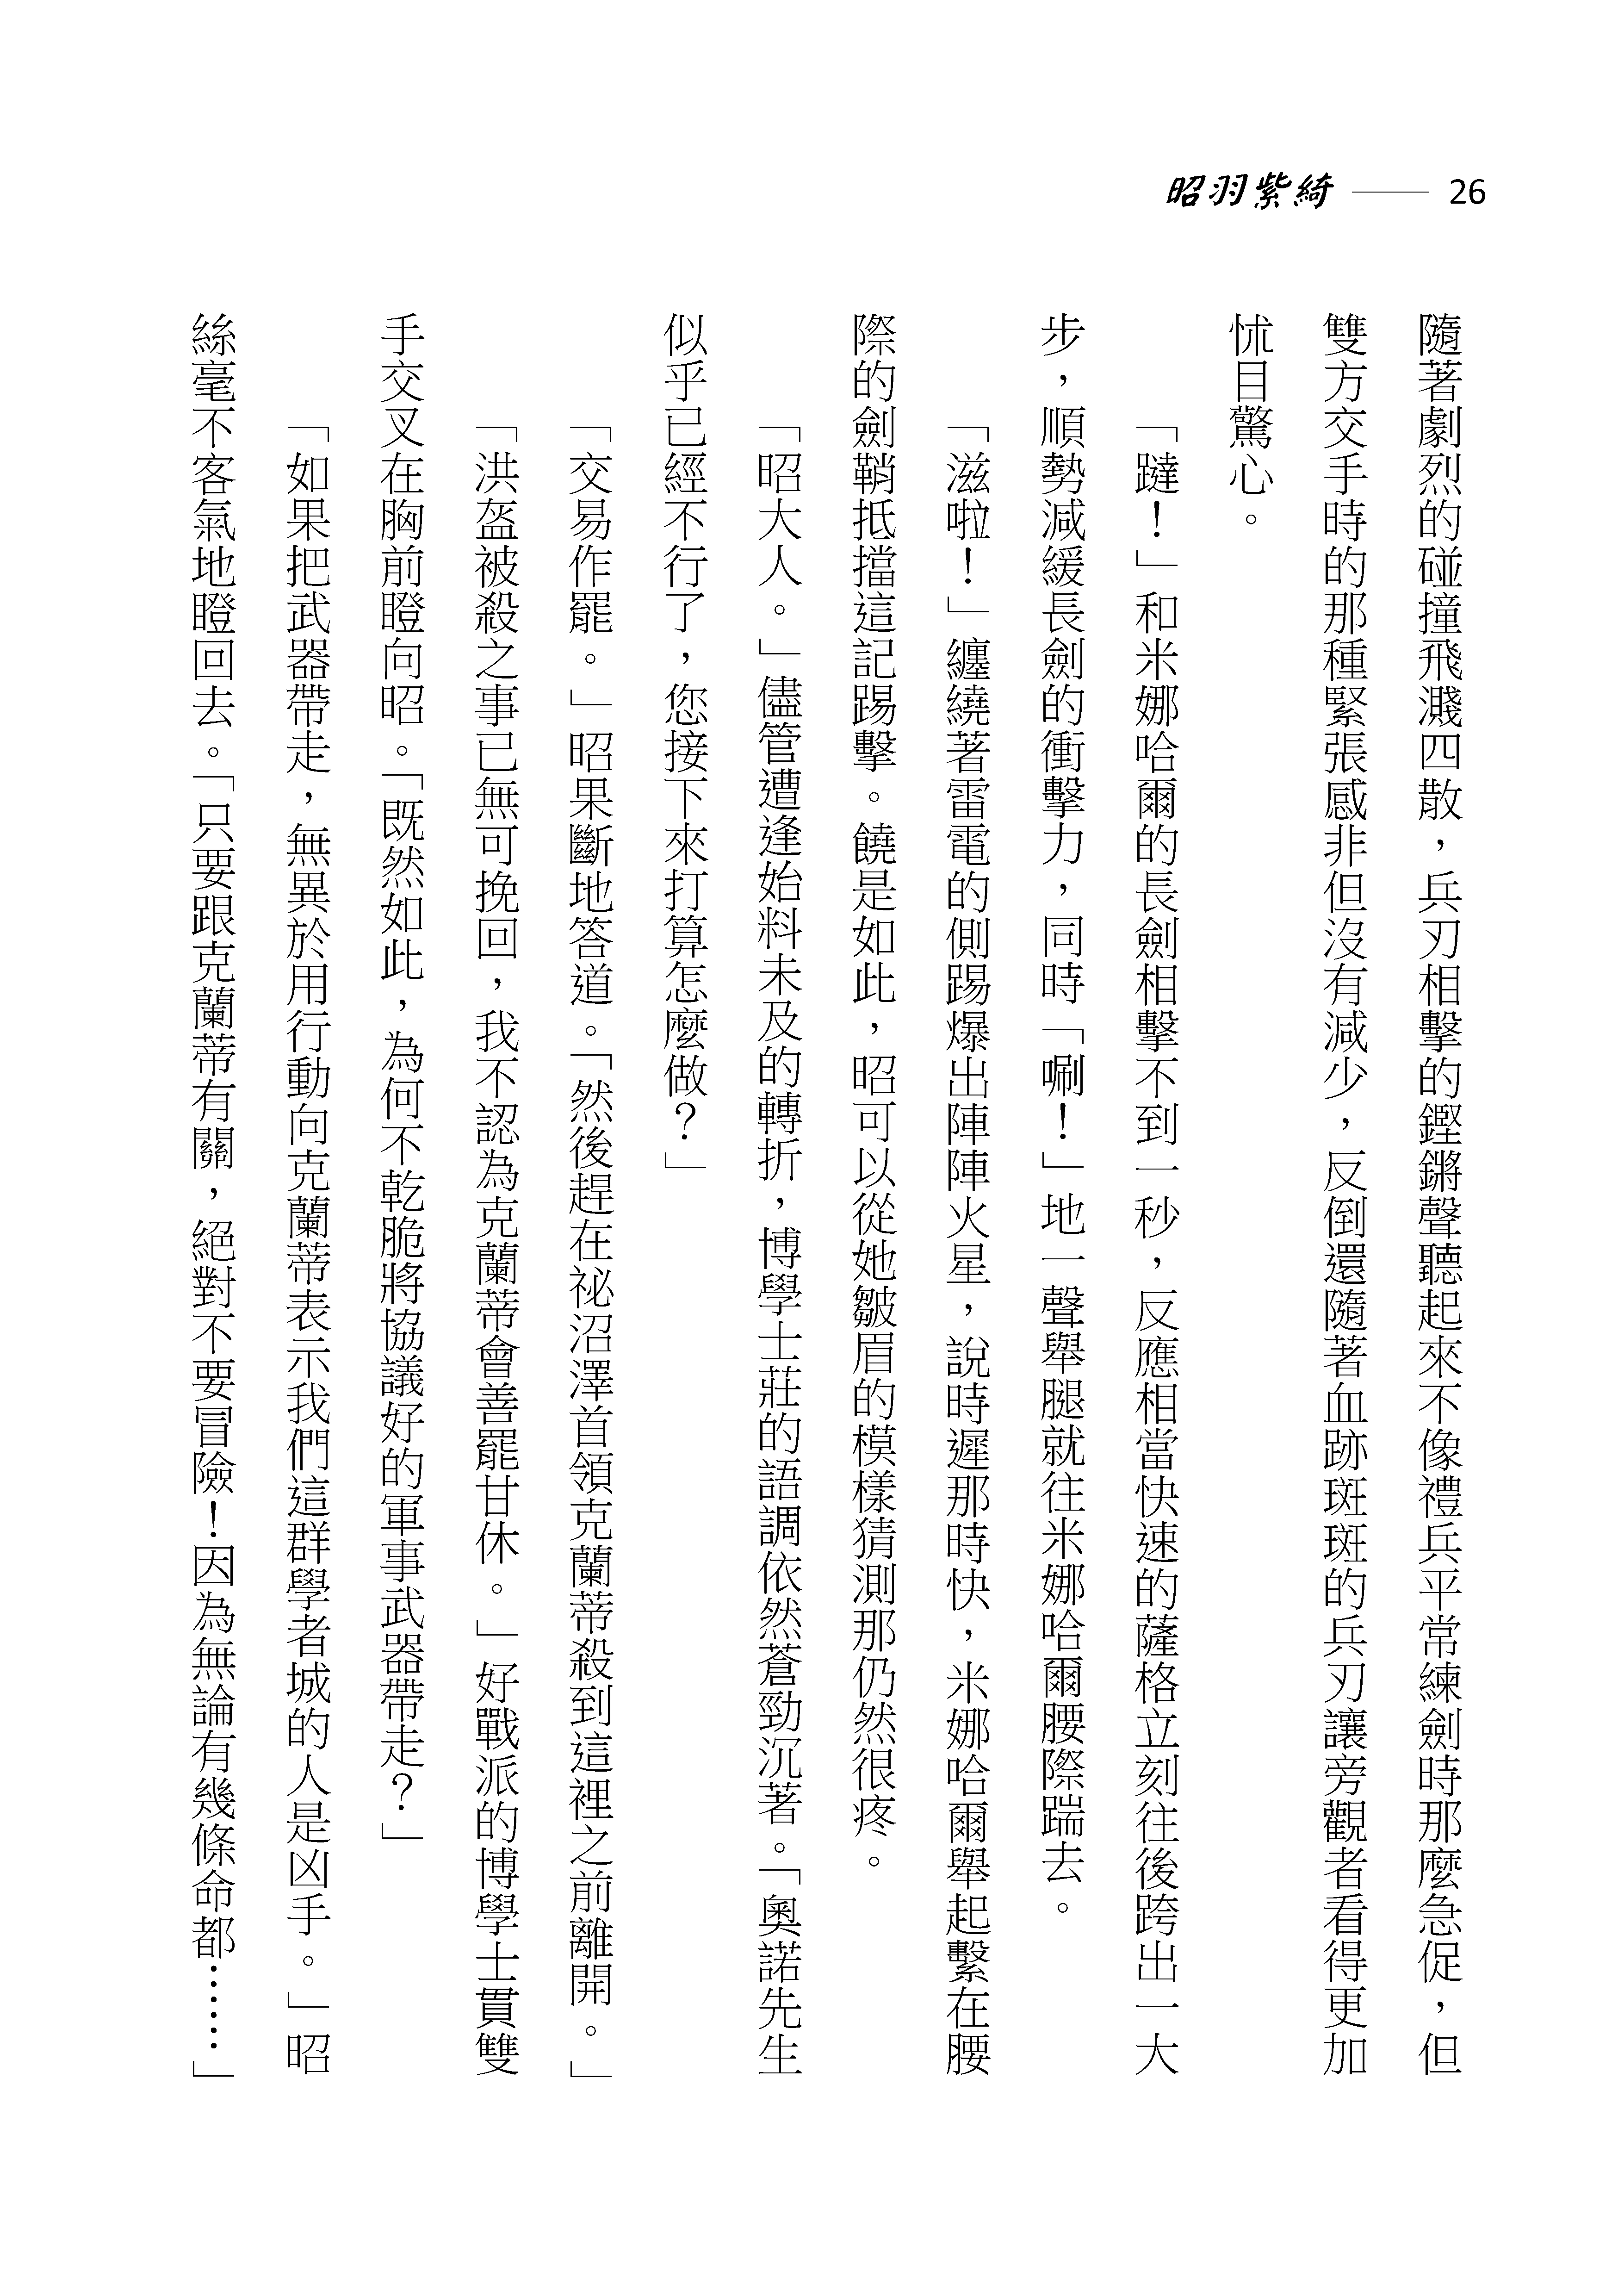 昭羽紫綺 —— 26
隨著劇烈的碰撞飛濺四散，兵刃相擊的鏗鏘聲聽起來不像禮兵平常練劍時那麼急促，但
雙方交手時的那種緊張感非但沒有減少，反倒還隨著血跡斑斑的兵刃讓旁觀者看得更加
怵目驚心。
「躂！」和米娜哈爾的長劍相擊不到一秒，反應相當快速的薩格立刻往後跨出一大
步，順勢減緩長劍的衝擊力，同時「唰！」地一聲舉腿就往米娜哈爾腰際踹去。
「滋啦！」纏繞著雷電的側踢爆出陣陣火星，說時遲那時快，米娜哈爾舉起繫在腰
際的劍鞘抵擋這記踢擊。饒是如此，昭可以從她皺眉的模樣猜測那仍然很疼。
「昭大人。」儘管遭逢始料未及的轉折，博學士莊的語調依然蒼勁沉著。「奧諾先生
似乎已經不行了，您接下來打算怎麼做？」
「交易作罷。」昭果斷地答道。「然後趕在祕沼澤首領克蘭蒂殺到這裡之前離開。」
「洪盔被殺之事已無可挽回，我不認為克蘭蒂會善罷甘休。」好戰派的博學士貫雙
手交叉在胸前瞪向昭。「既然如此，為何不乾脆將協議好的軍事武器帶走？」
「如果把武器帶走，無異於用行動向克蘭蒂表示我們這群學者城的人是凶手。」昭
絲毫不客氣地瞪回去。「只要跟克蘭蒂有關，絕對不要冒險！因為無論有幾條命都……」